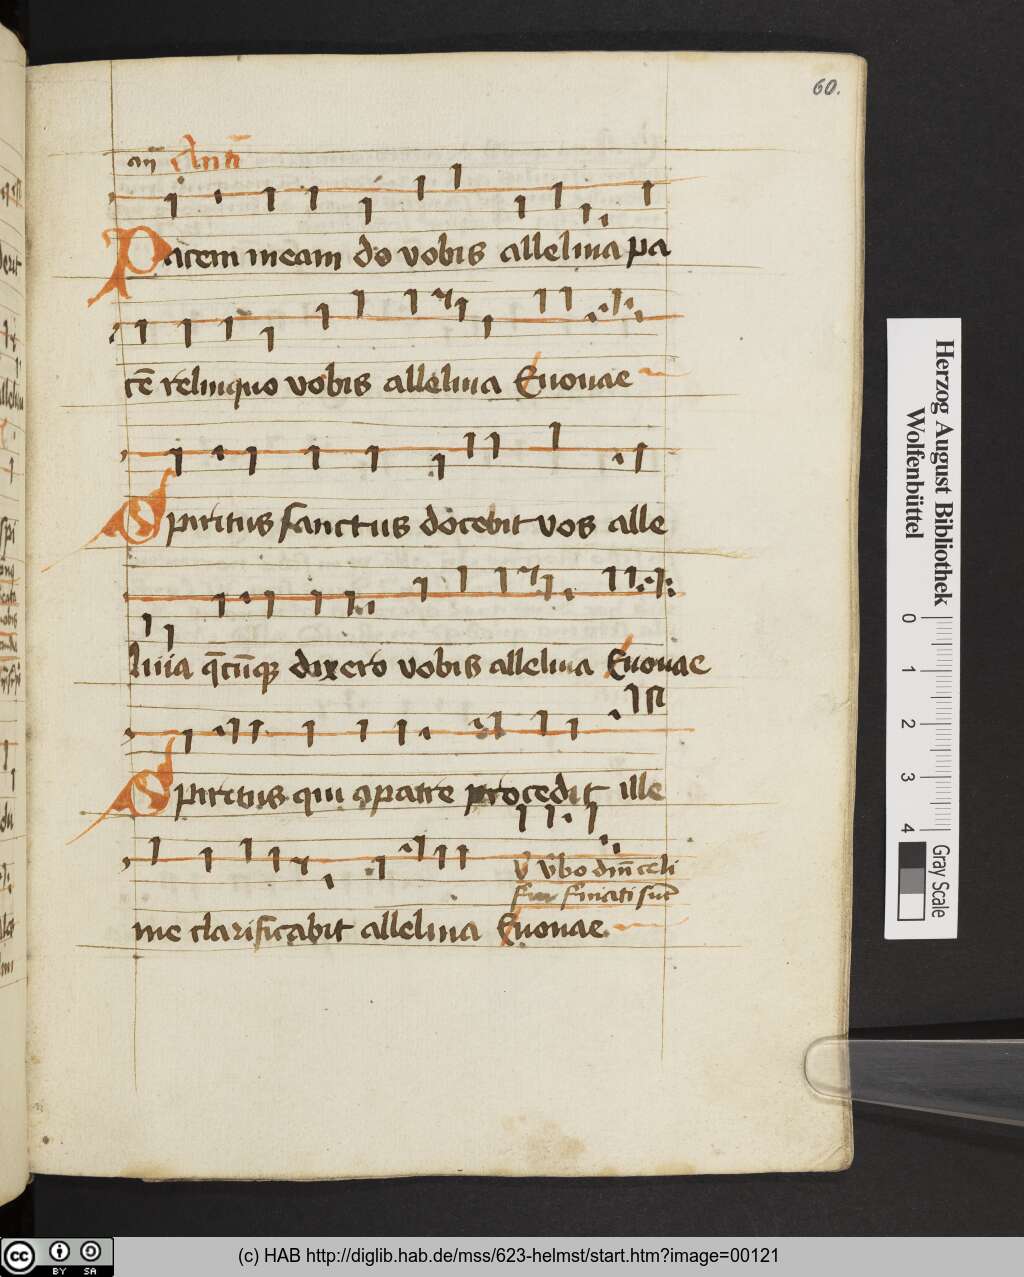 60.
an̄ Antī
Pacem meam do vobis alleluia pa
cē relinquo vobis alleluia Euouae
Spiritus sanctus docebit vos alle
luia q̄cūq̨ dixero vobis alleluia Euouae
Spiritus qui a patre procedit ille
v̄ v̄bo dn̄i celi
fir firmati sūt
me clarificabit alleluia Euouae
Herzog August Bibliothek
Wolfenbüttel
0 1 2 3 4
Gray Scale
cc BY SA
(c) HAB http://diglib.hab.de/mss/623-helmst/start.htm?image=00121